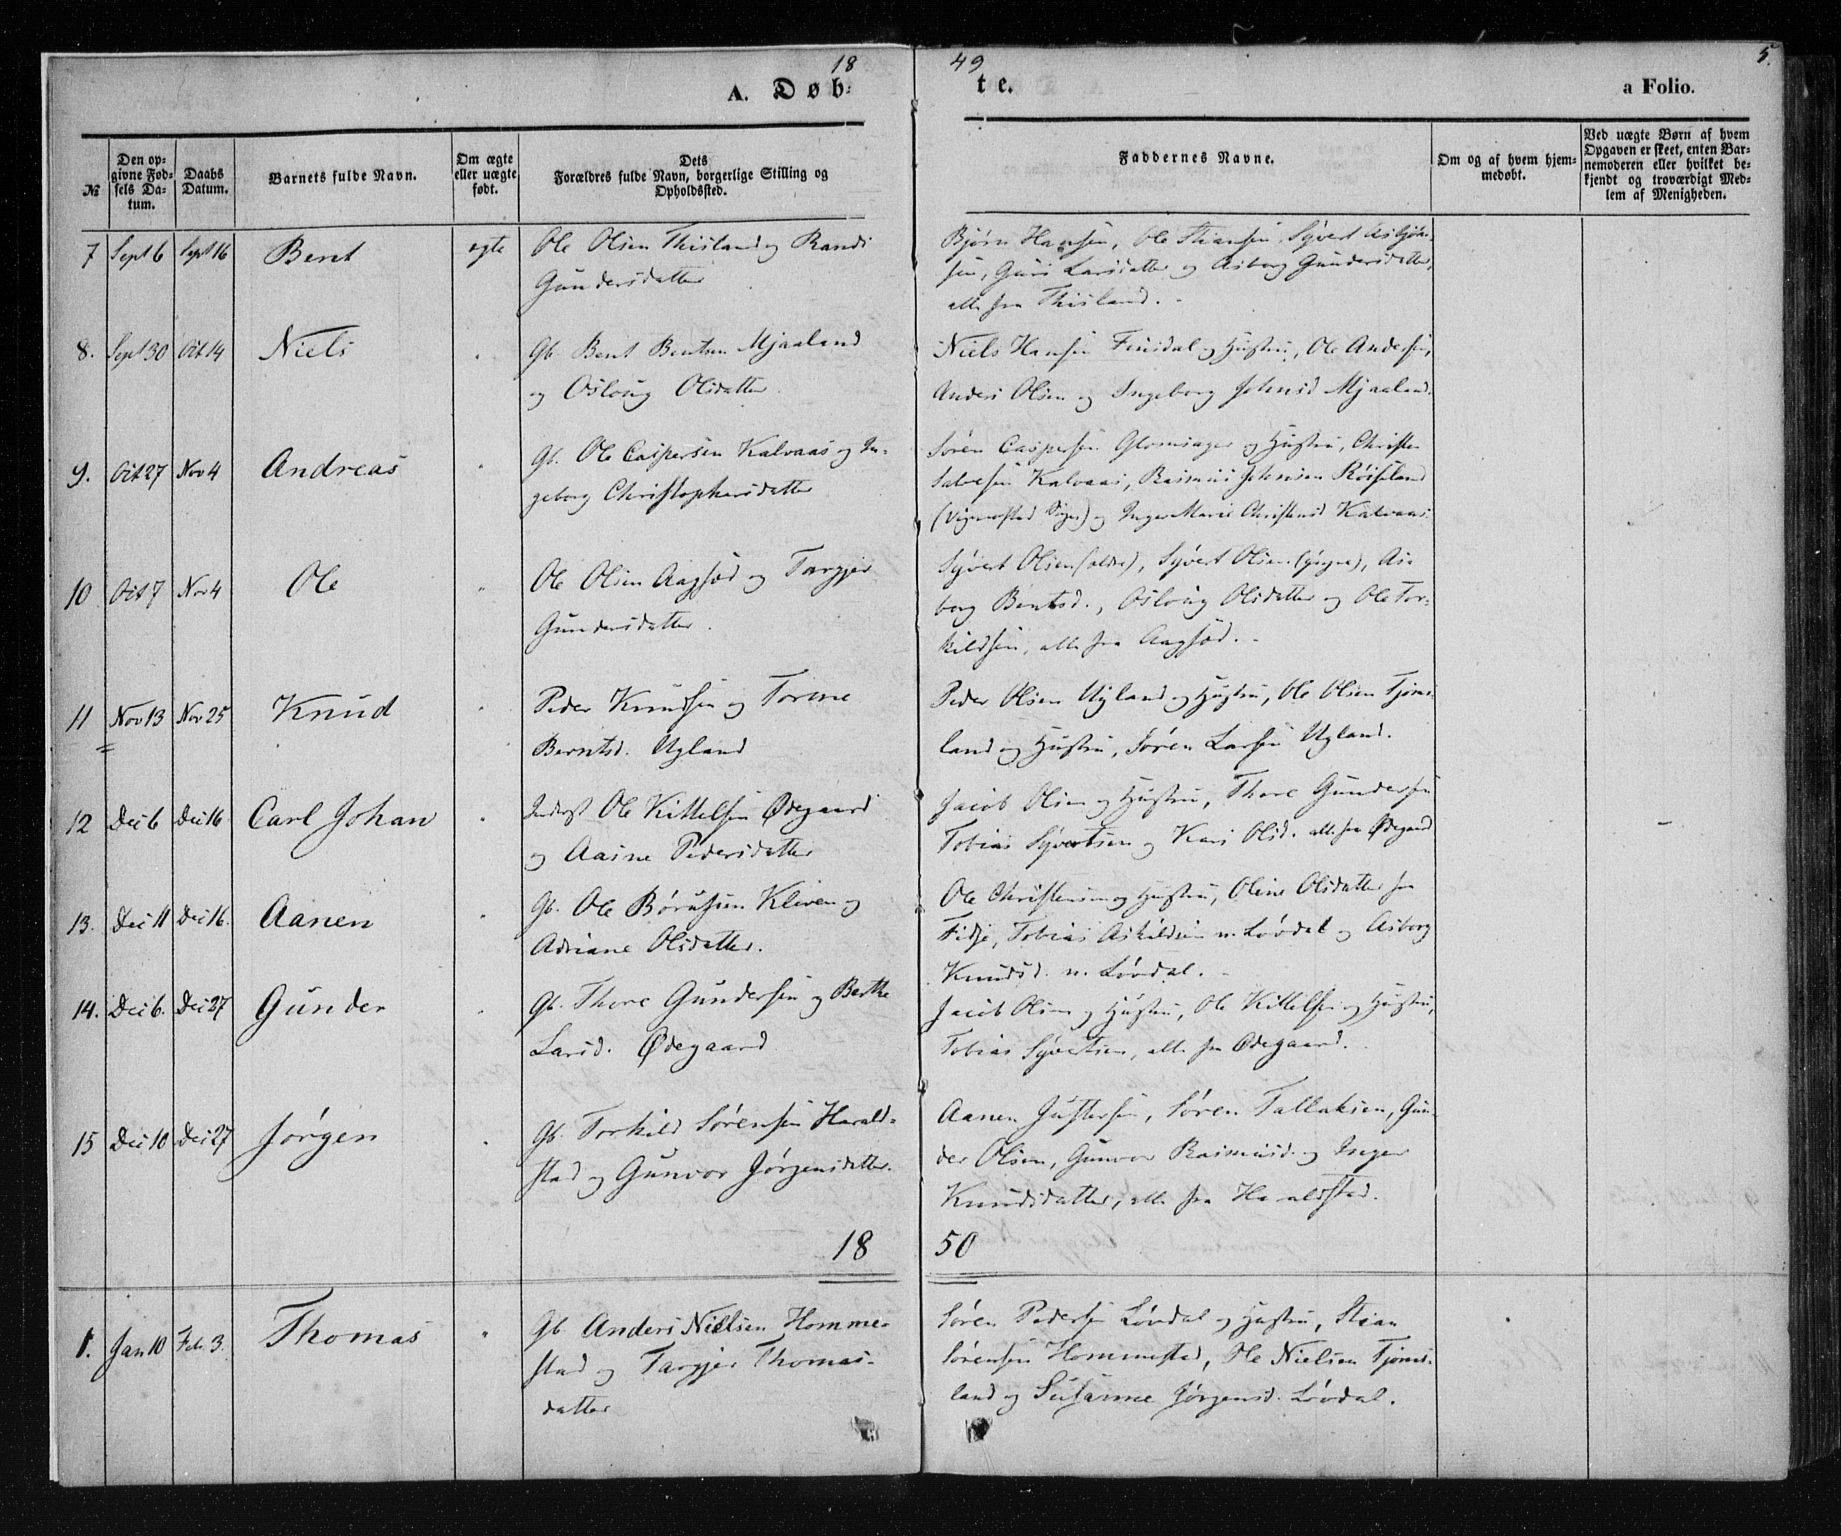 18 49 5.
A. Døb- te. a Folio.
№ Den op-
givne Fød-
sels Da-
tum. Daabs
Datum. Barnets fulde Navn. Om ægte
eller uægte
født. Dets
Forældres fulde Navn, borgerlige Stilling og
Opholdssted. Faddernes Navne. Om og af hvem hjem-
medøbt. Ved uægte Børn af hvem
Opgaven er skeet, enten Bar-
nemoderen eller hvilket be-
kjendt og troværdigt Med-
lem af Menigheden.
7 Sept 6 Sept 16 Bent egte Ole Olsen Thisland og Randi
Gundersdatter
Bjørn Hansen, Ole Stiansen, Syvert Asbjørn-
sen, Guri Larsdatter og Asborg Gundersdatter,
alle fra Thisland.
8. Sept 30 Oct 14 Niels " Gb. Bent Bentsen Mjaaland
og Oslaug Olsdatter.
Niels Hansen Finsdal og Hustru, Ole Andersen,
Anders Olsen og Ingeborg Johnsd Mjaaland.
9. Oct 27 Nov 4 Andreas " Gb. Ole Caspersen Kalvaas og In-
geborg Christophersdatter
Søren Caspersen Glomsager og Hustru, Christen
Salvesen Kalvaas, Rasmus Johnsen Røiseland
(Vigmostad Sogn) og Inger Marie Christensd Kalvaas.
10 Oct 7 Nov 4 Ole " Ole Olsen Aagsød og Targjer
Gundersdatter.
Syvert Olsen (ældre), Syvert Olsen (yngre), As-
borg Bentsd., Oslaug Olsdatter og Ole Tor-
kildsen, alle fra Aagsød.
11 Nov 13 Nov 25 Knud " Peder Knudsen og Torine
Berntsd. Ugland
Peder Olsen Ugland og Hustru, Ole Olsen Tjoms-
land og Hustru, Søren Larsen Ugland.
12 Dec 6 Dec 16 Carl Johan " Inderst Ole Kittelsen Ødegaard
og Aasne Pedersdatter
Jacob Olsen og Hustru, Thore Gundersen
Tobias Syvertsen og Kari Olsd. alle fra Ødegaard
13. Dec 11 Dec 16. Aanen " Gb. Ole Børusen Kleven og
Adriane Olsdatter.
Ole Christensen og Hustru, Oline Olsdatter fra
Fidje, Tobias Askildsen n. Løvdal og Asborg
Knudsd. n. Løvdal.
14. Dec 6. Dec 27 Gunder " Gb. Thore Gundersen og Berthe
Larsd. Ødegaard
Jacob Olsen og Hustru, Ole Kittelsen og Hustru,
Tobias Syvertsen, alle fra Ødegaard.
15 Dec 10 Dec 27 Jørgen " Gb. Torkild Sørensen Harald-
stad og Gunvor Jørgensdatter.
Aanen Gustersen, Søren Tallaksen, Gun-
der Olsen, Gunvor Rasmusd. og Inger
Knudsdatter, alle fra Haraldstad.
18 50
1. Jan 10 Feb. 3. Thomas " Gb Anders Nielsen Homme-
stad og Targjer Thomas-
datter
Søren Pedersen Løvdal og Hustru, Stian
Sørensen Hommestad, Ole Nielsen Tjoms-
land og Susanne Jørgensd. Løvdal.